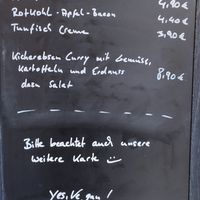 4,90€
Rotkohl-Apfel-Bacon 4,40€
Tunfisch Creme 3,90€
Kichererbsen Curry mit Gemüse,
Kartoffeln und Erdnuss 8,90€
dazu Salat
Bitte beachtet auch unsere
weitere Karte